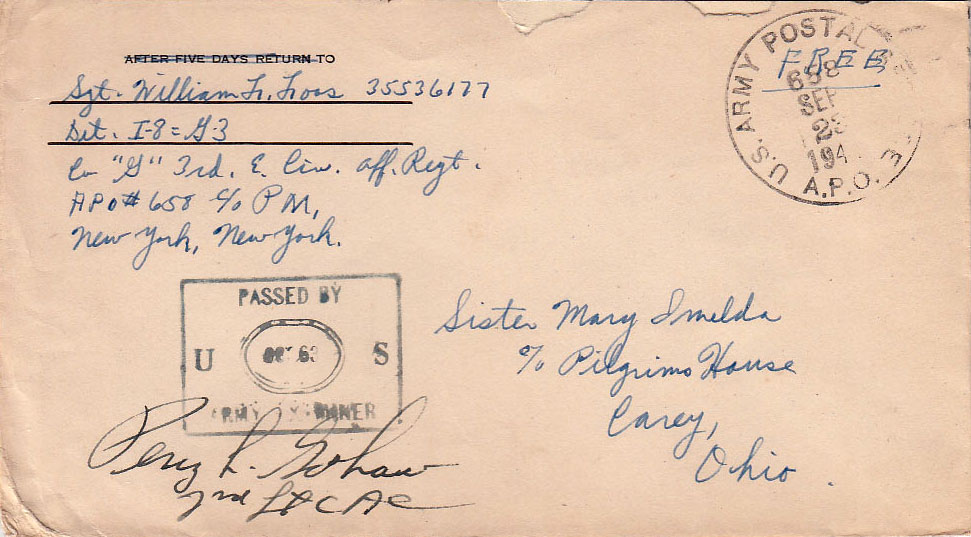 AFTER FIVE DAYS RETURN TO
Sgt. William Fr. 35536177
Det. I-8 = G-3
Co "G" 3rd. E. Civ. Aff. Regt.
APO # 658 c/o PM,
New York, New York.
U.S. ARMY POSTAL
FREE
658
SEP
23
194
A.P.O.
PASSED BY
U S
ARMY EXAMINER
2nd Lt CAC
Sister Mary Imelda
c/o Pilgrims House
Carey,
Ohio.